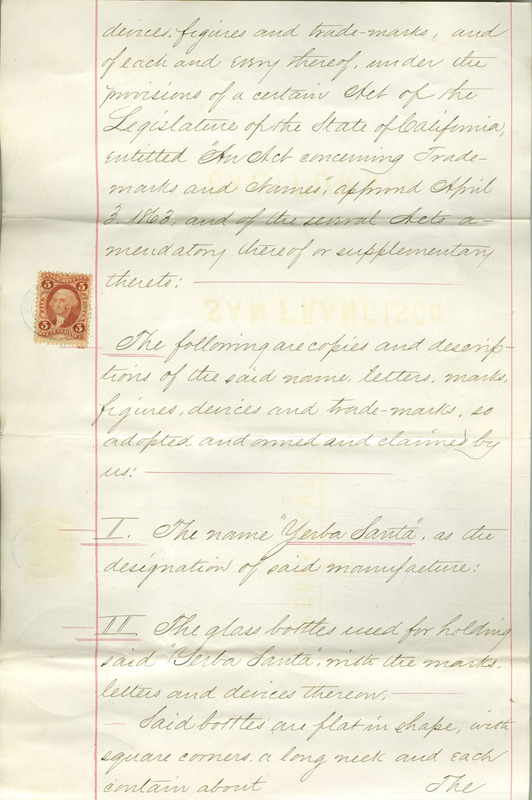 devices, figures and trade-marks, and
of each and every thereof, under the
provisions of a certain Act of the
Legislature of the State of California,
entitled "An Act concerning Trade-
marks and Names", approved April
3. 1863, and of the several Acts a-
mendatory thereof or supplementary
thereto:
SAN FRANCISCO
5 5
5 5
The following are copies and descrip-
tions of the said name, letters, marks,
figures, devices and trade-marks, so
adopted and owned and claimed by
us:
I. The name "Yerba Santa", as the
designation of said manufacture:
II The glass bottles used for holding
said "Yerba Santa", with the marks,
letters and devices thereon.
Said bottles are flat in shape, with
square corners, a long neck and each
contain about The